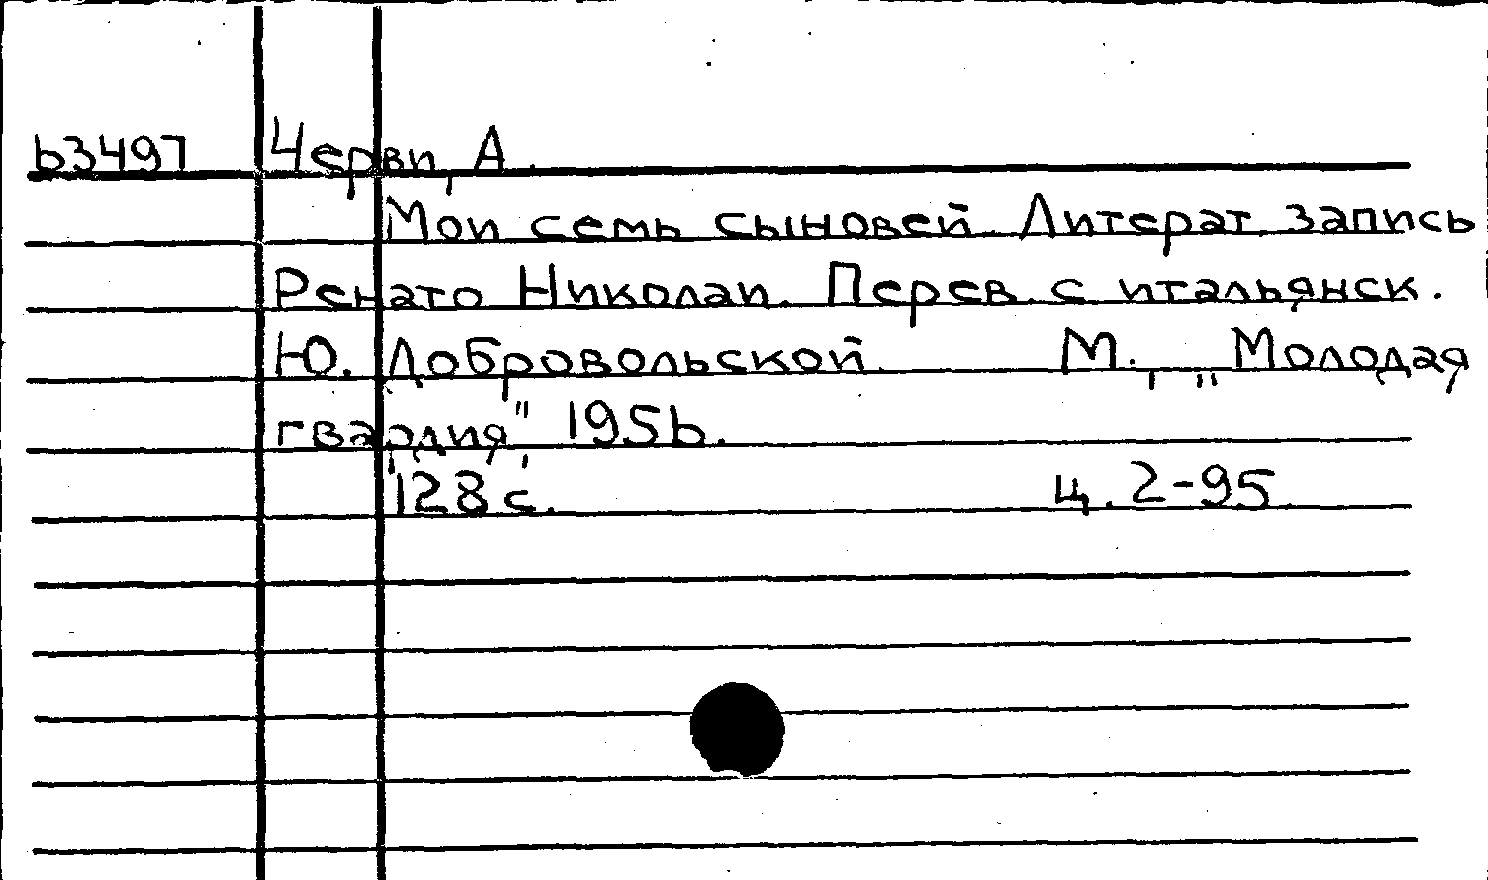 63497 Черви, А.
Мои семь сыновей. Литерат. запись
Ренато Николаи. Перев. с итальянск.
Ю. Добровольской. М., „Молодая
гвардия", 1956.
128 с. Ц. 2-95